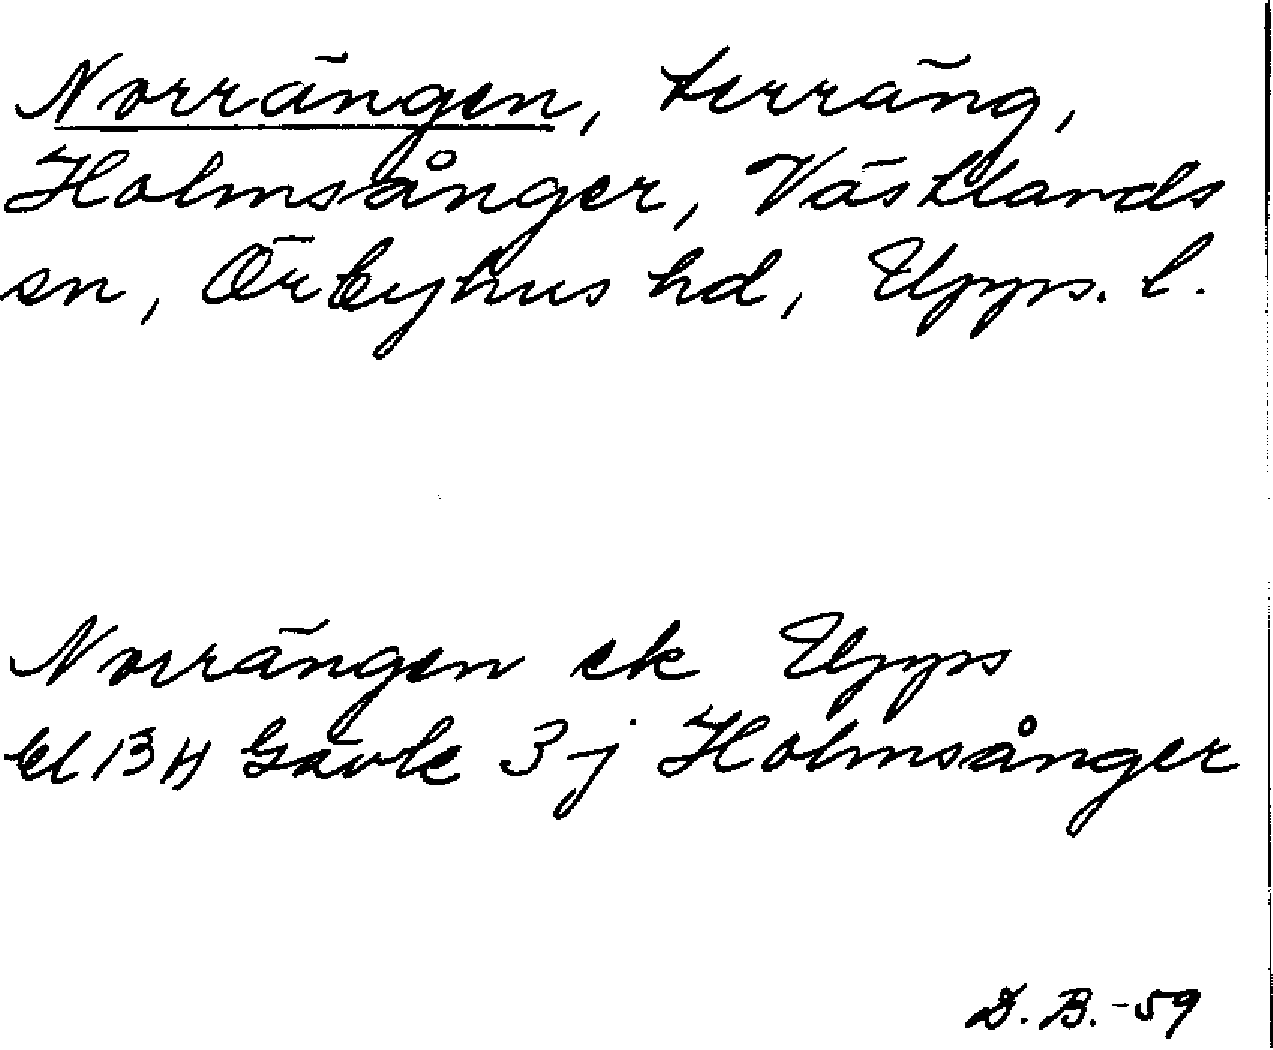 Norrängen, terräng,
Holmsånger, Västlands
sn, Örbyhus hd, Upps. l.
Norrängen ek Upps
bl 13 H Gävle 3 j Holmsånger
D. B. -59